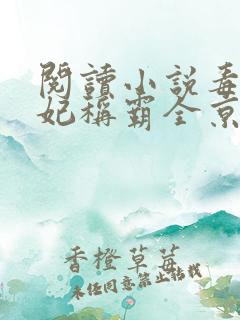 閱讀小說毒
妃稱霸全京
香橙草莓
未经同意禁止转载